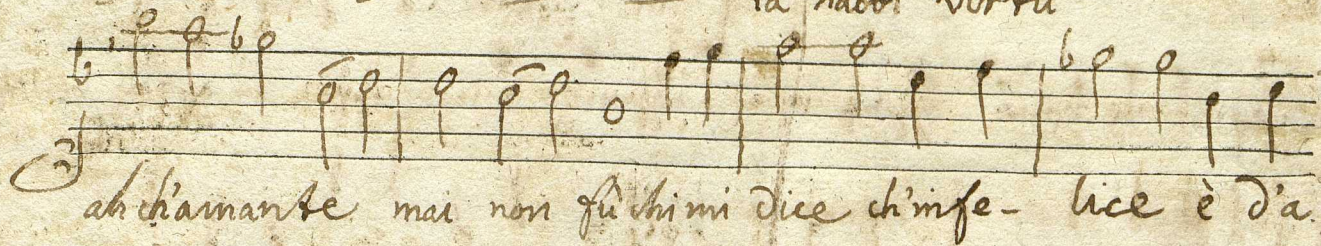 vertu
ah ch'amante mai non fù chi mi dice ch'infe- lice è d'a